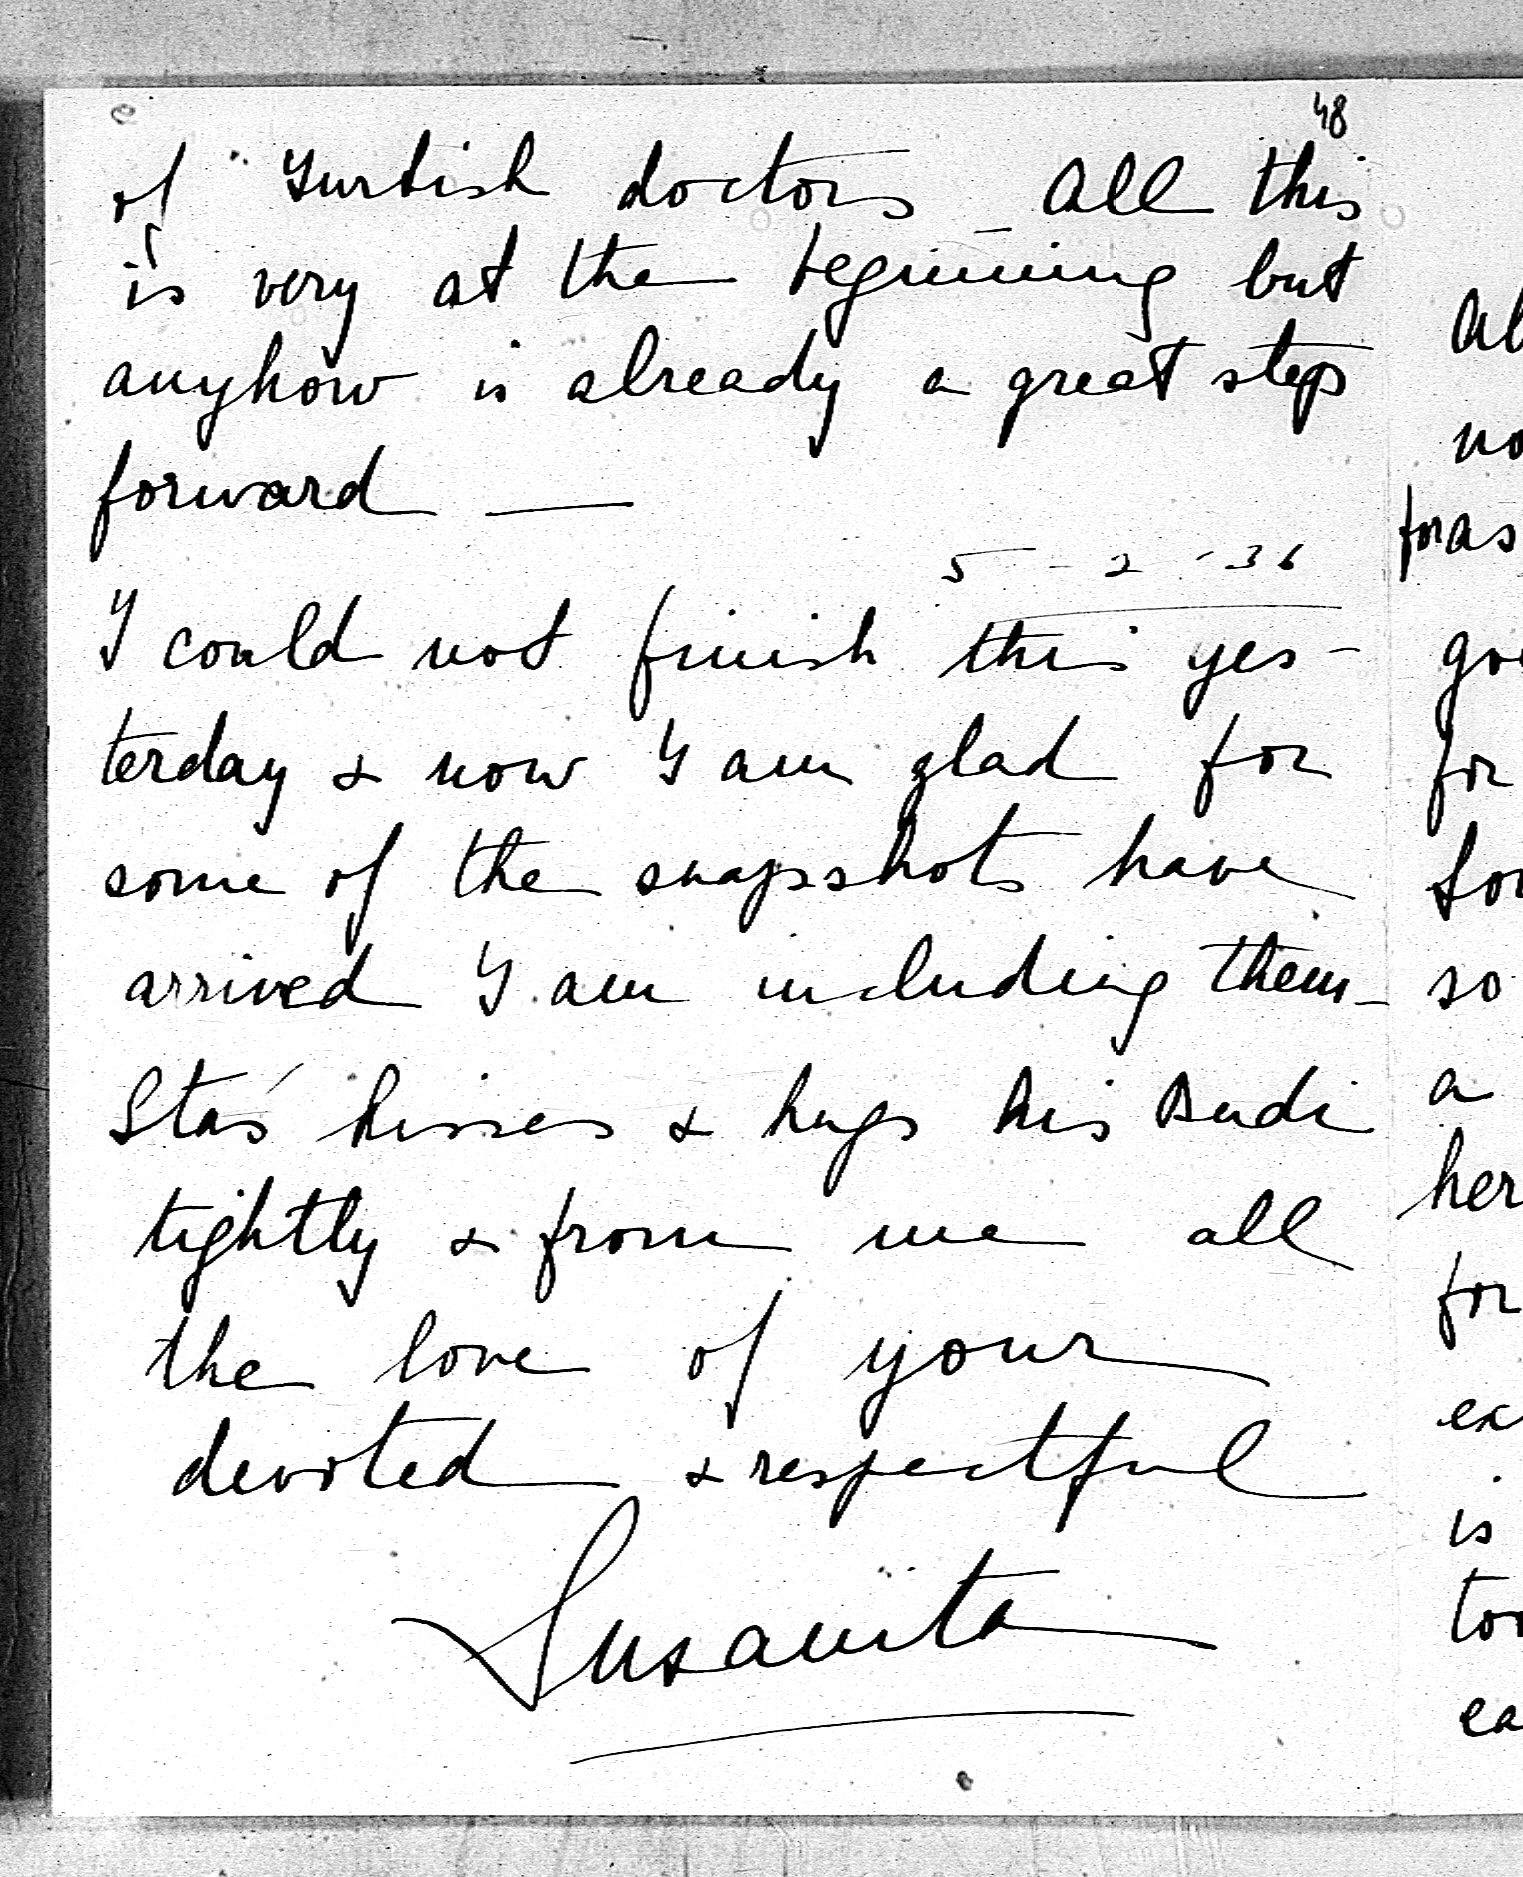 48
of Turkish doctors _ All this
is very at the beginning but
anyhow is already a great step
forward —
5 - 2 - 36
I could not finish this yes-
terday & now I am glad for
some of the snapshots have
arrived I am including them_
Stas kisses & hugs his Dadi
tightly & from me all
the love of your
devoted & respectful
Susanita
al
no
for as
go
for
so
a
her
for
ex
is
to
ea